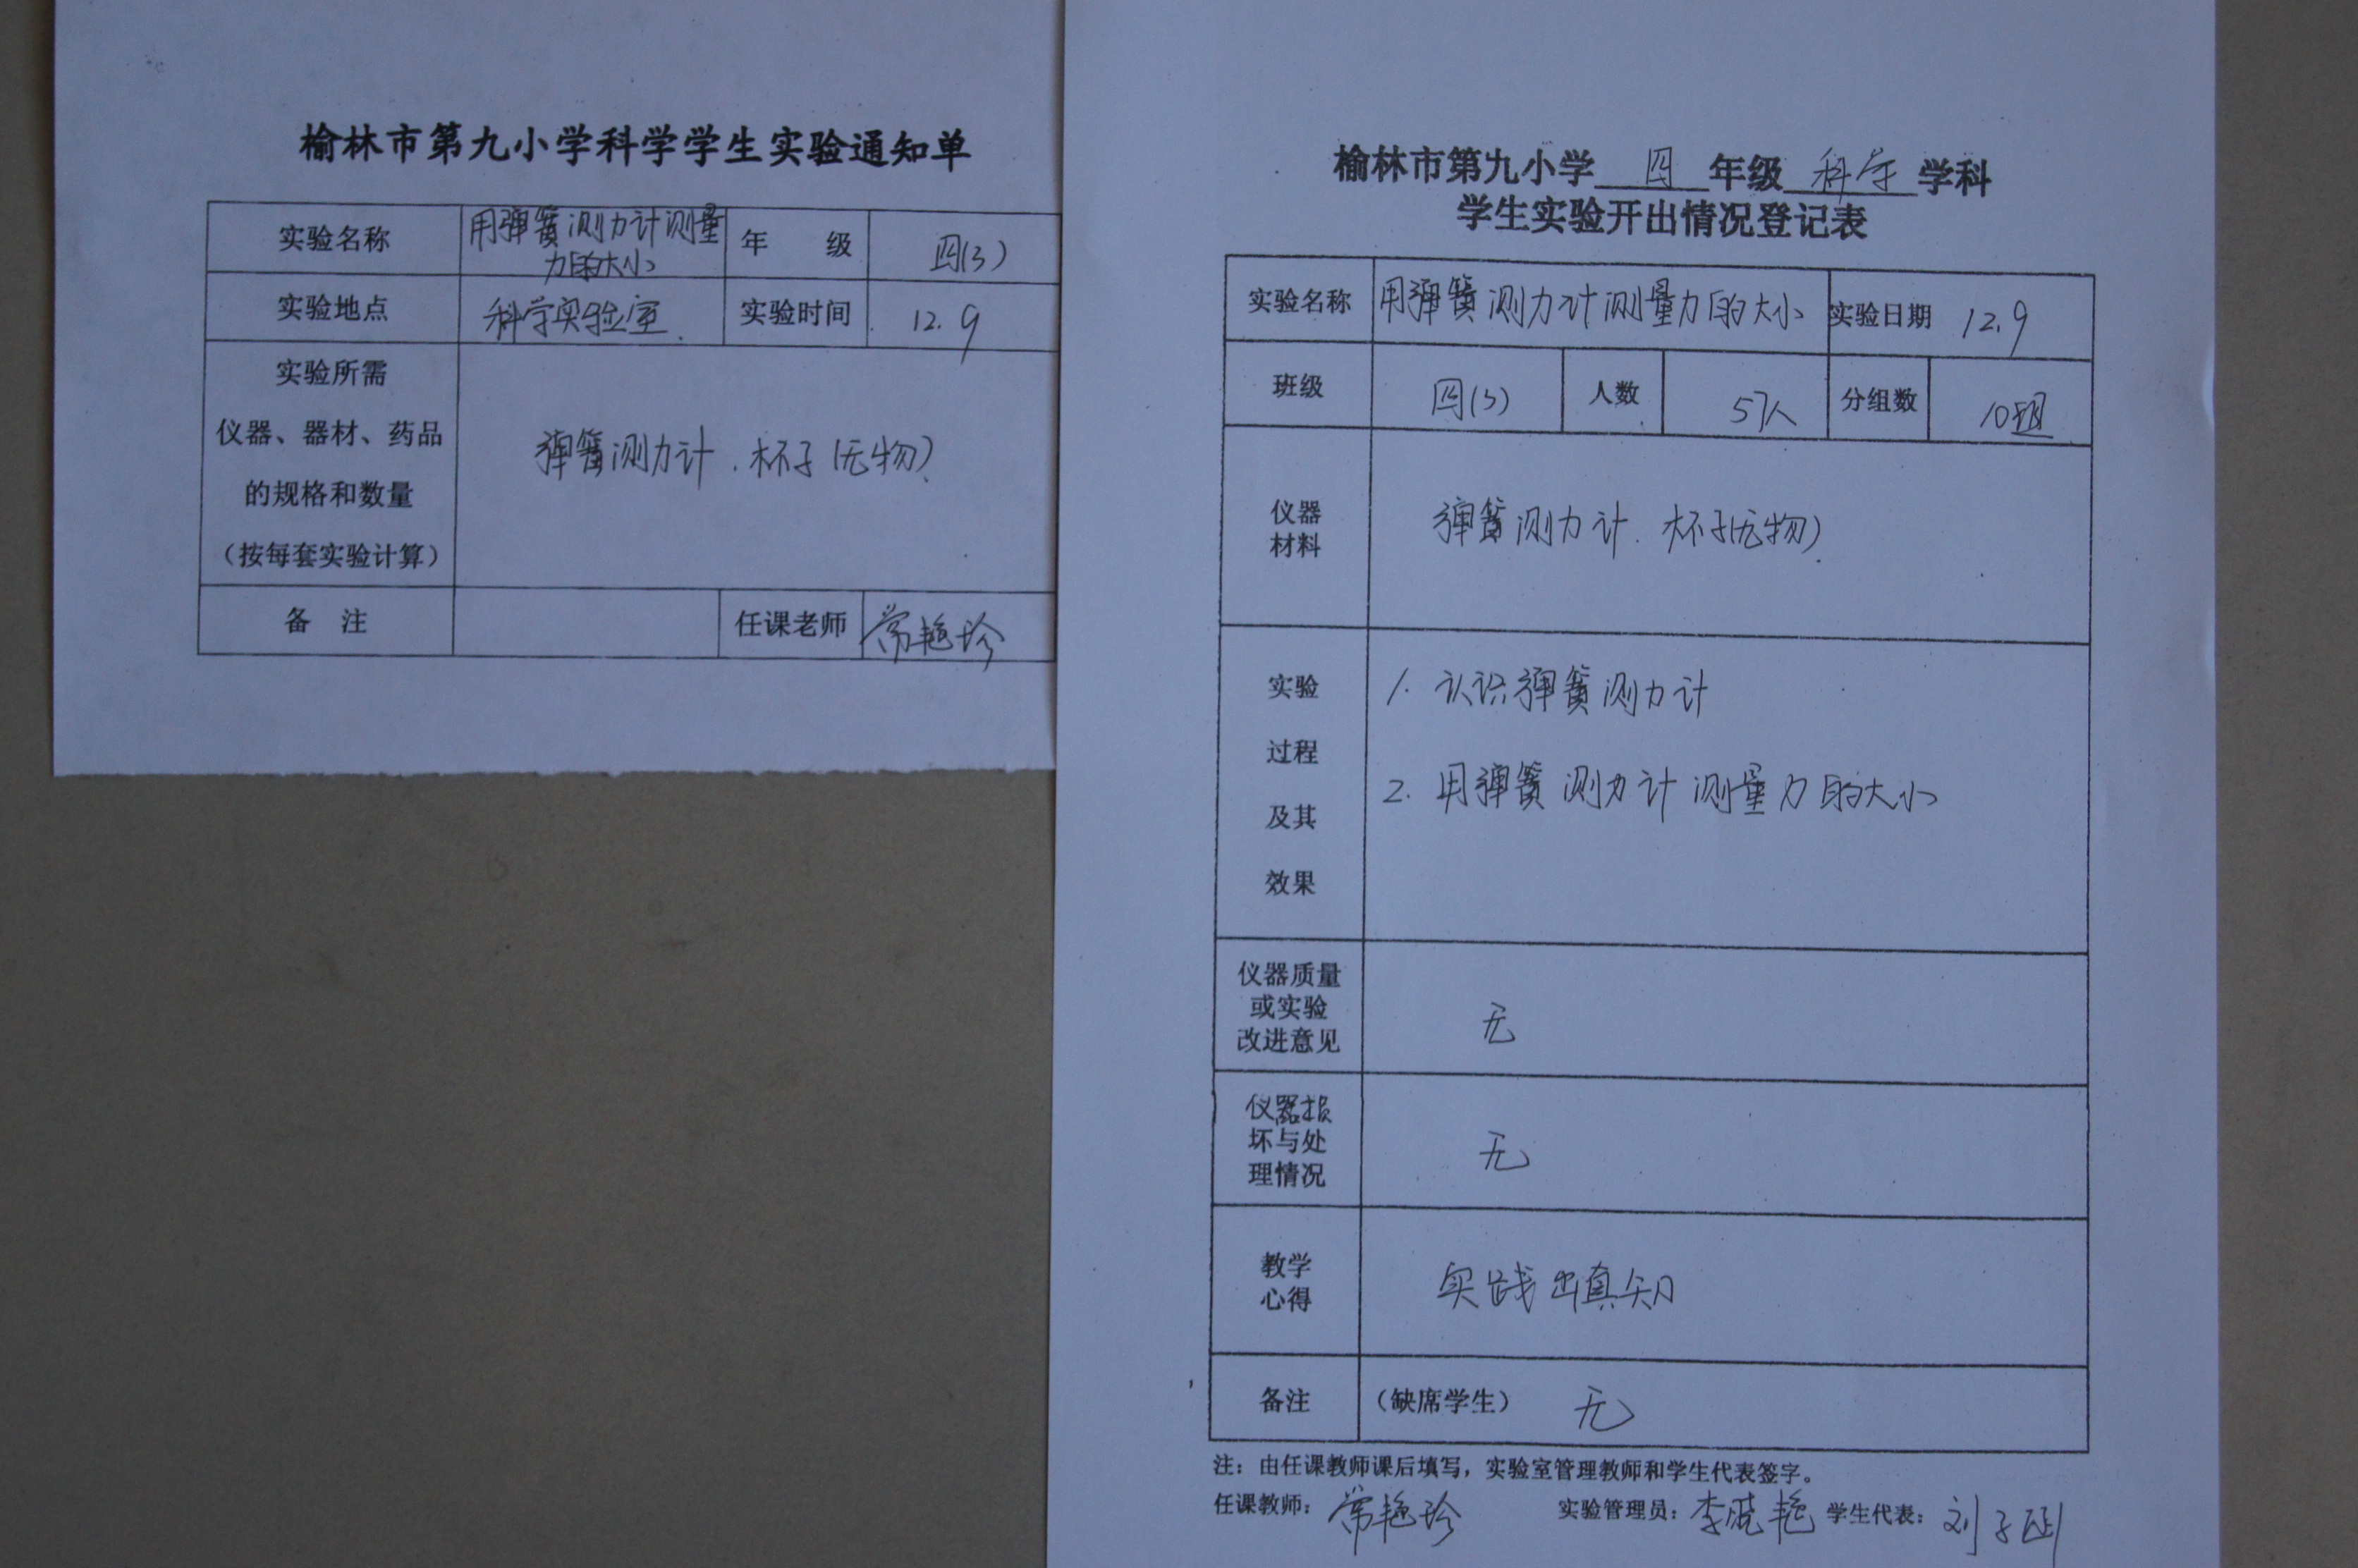 榆林市第九小学科学学生实验通知单
实验名称 用弹簧测力计测量力的大小 年 级 四(3)
实验地点 科学实验室 实验时间 12.9
实验所需
仪器、器材、药品
的规格和数量
（按每套实验计算）
弹簧测力计.杯子(无物)
备 注 任课老师 常艳珍
榆林市第九小学 四 年级 科学 学科
学生实验开出情况登记表
实验名称 用弹簧测力计测量力的大小 实验日期 12.9
班级 四(3) 人数 57人 分组数 10组
仪器
材料
弹簧测力计.杯子(无物)
实验
过程
及其
效果
1.认识弹簧测力计
2.用弹簧测力计测量力的大小
仪器质量
或实验
改进意见
无
仪器损
坏与处
理情况
无
教学
心得
实践出真知
备注 （缺席学生） 无
注：由任课教师课后填写，实验室管理教师和学生代表签字。
任课教师： 常艳珍 实验管理员： 李晓艳 学生代表： 刘子函